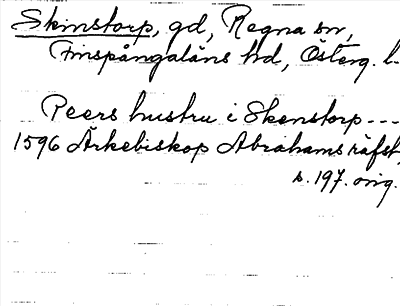 Skinstorp, gd, Regna sn,
Finspångaläns hd, Österg. l.
Peers hustru i Skenstorp ---
1596 Ärkebiskop Abrahams räfst,
s. 197. orig.